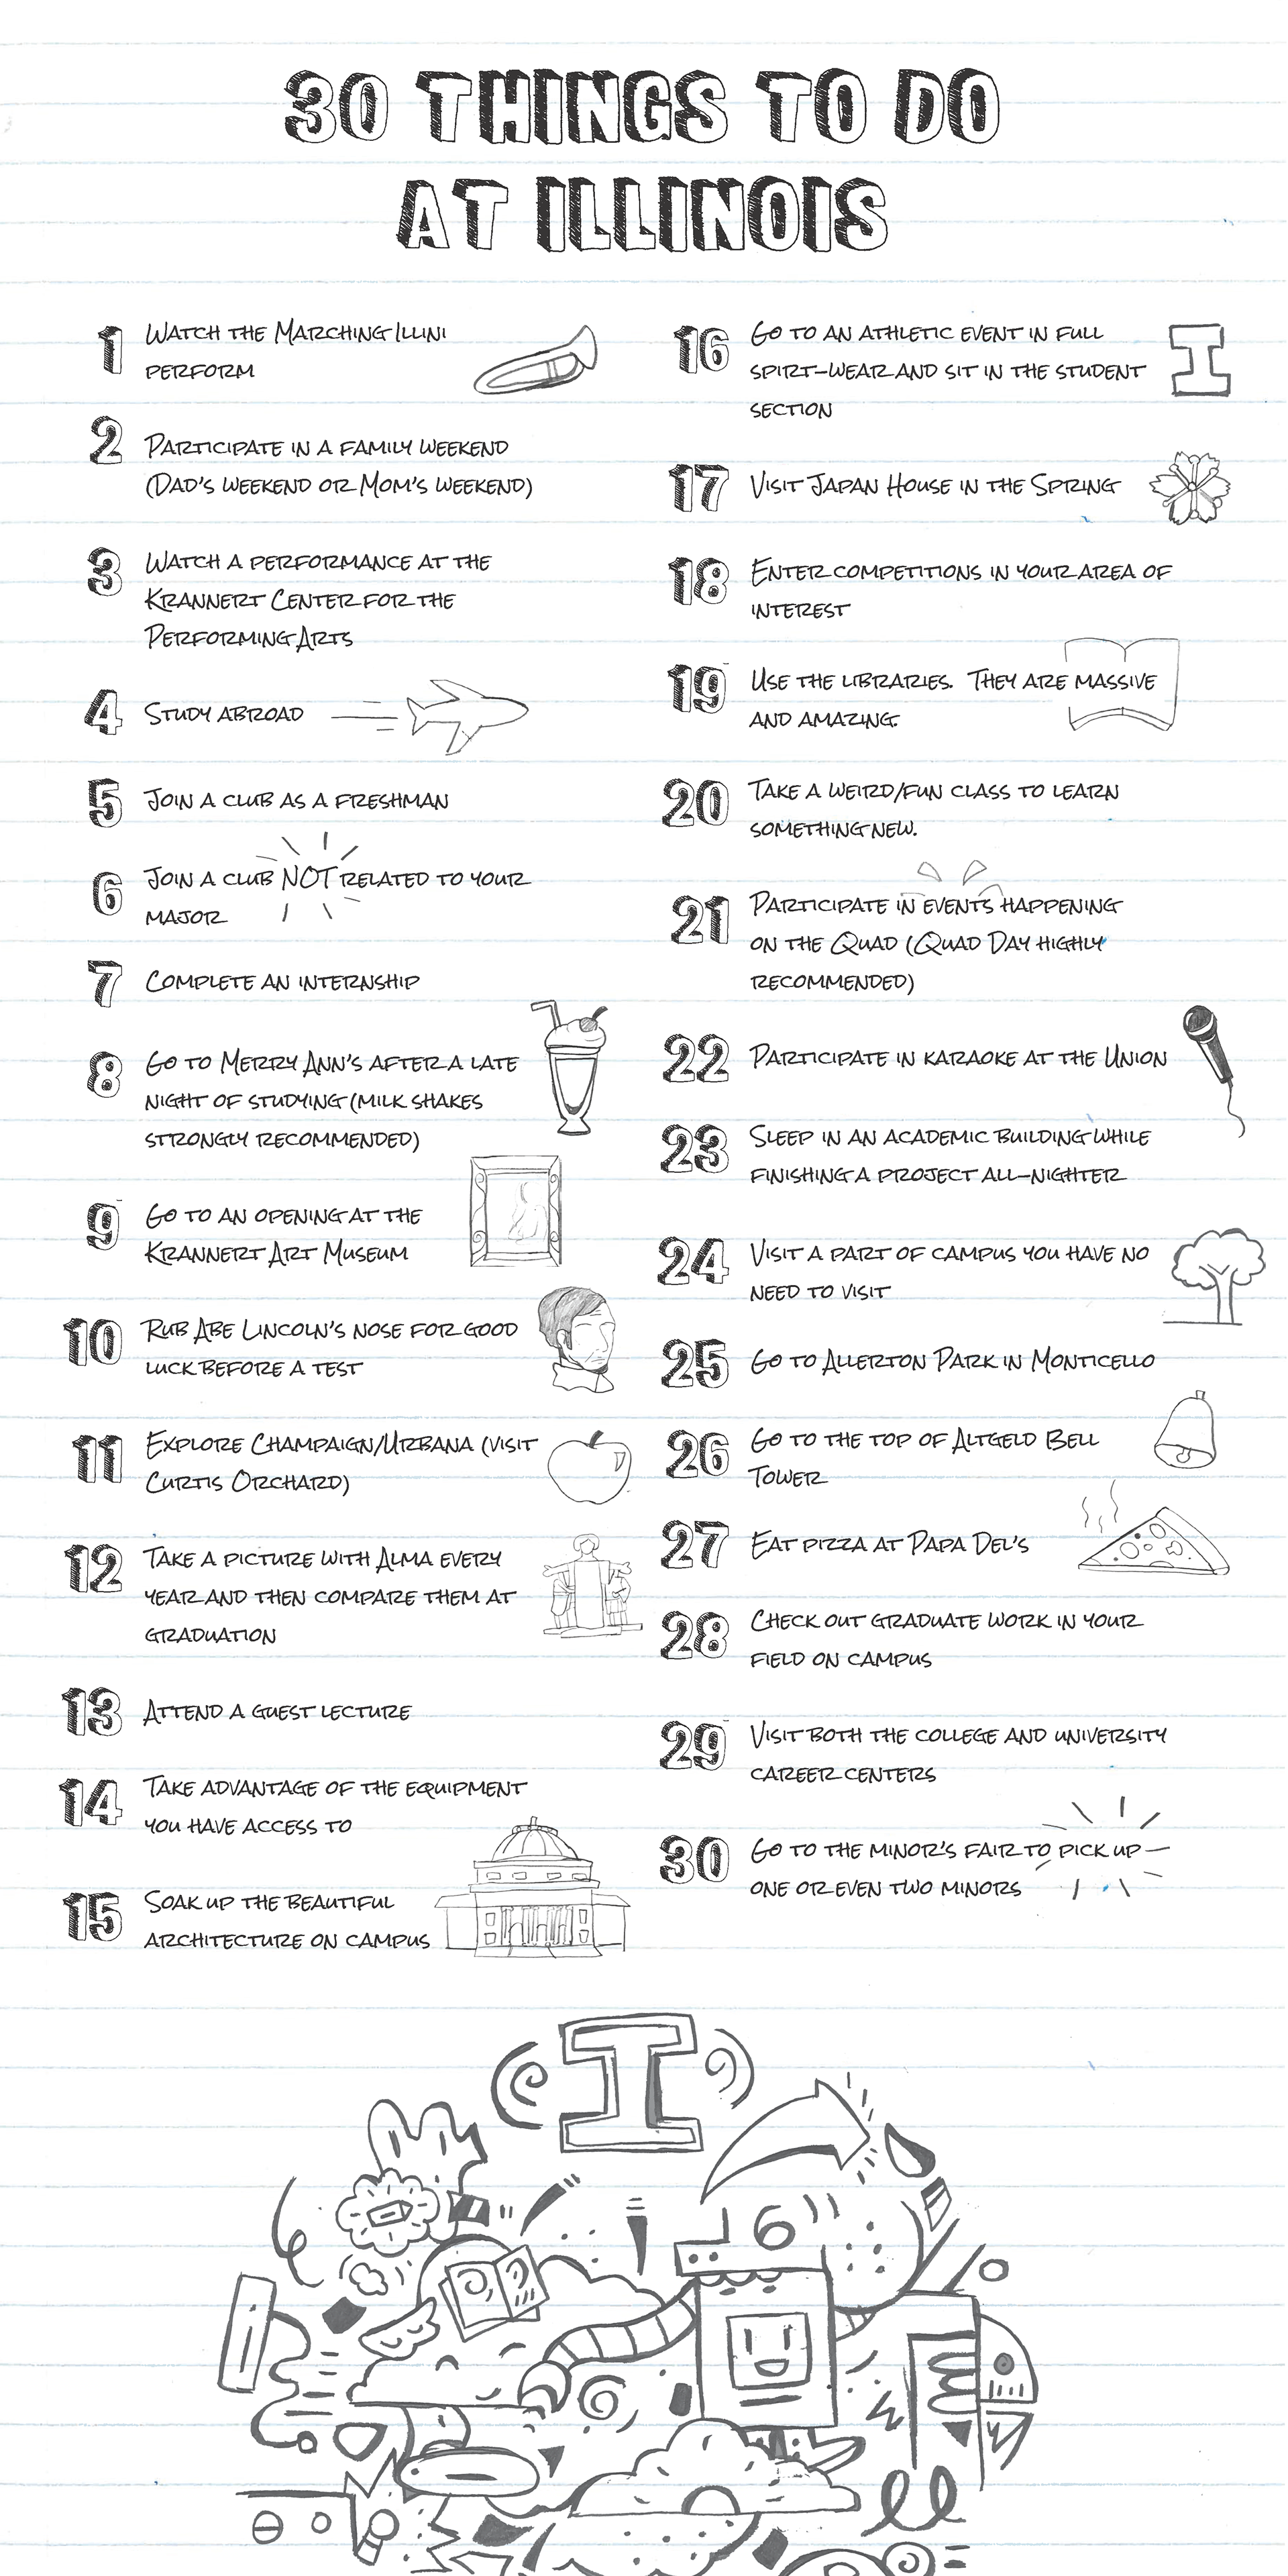 30 THINGS TO DO
AT ILLINOIS
1 WATCH THE MARCHING ILLINI
PERFORM
2 PARTICIPATE IN A FAMILY WEEKEND
(DAD'S WEEKEND OR MOM'S WEEKEND)
3 WATCH A PERFORMANCE AT THE
KRANNERT CENTER FOR THE
PERFORMING ARTS
4 STUDY ABROAD
5 JOIN A CLUB AS A FRESHMAN
6 JOIN A CLUB NOT RELATED TO YOUR
MAJOR
7 COMPLETE AN INTERNSHIP
8 GO TO MERRY ANN'S AFTER A LATE
NIGHT OF STUDYING (MILK SHAKES
STRONGLY RECOMMENDED)
9 GO TO AN OPENING AT THE
KRANNERT ART MUSEUM
10 RUB ABE LINCOLN'S NOSE FOR GOOD
LUCK BEFORE A TEST
11 EXPLORE CHAMPAIGN/URBANA (VISIT
CURTIS ORCHARD)
12 TAKE A PICTURE WITH ALMA EVERY
YEAR AND THEN COMPARE THEM AT
GRADUATION
13 ATTEND A GUEST LECTURE
14 TAKE ADVANTAGE OF THE EQUIPMENT
YOU HAVE ACCESS TO
15 SOAK UP THE BEAUTIFUL
ARCHITECTURE ON CAMPUS
16 GO TO AN ATHLETIC EVENT IN FULL
SPIRT-WEAR AND SIT IN THE STUDENT
SECTION
I
17 VISIT JAPAN HOUSE IN THE SPRING
18 ENTER COMPETITIONS IN YOUR AREA OF
INTEREST
19 USE THE LIBRARIES. THEY ARE MASSIVE
AND AMAZING.
20 TAKE A WEIRD/FUN CLASS TO LEARN
SOMETHING NEW.
21 PARTICIPATE IN EVENTS HAPPENING
ON THE QUAD (QUAD DAY HIGHLY
RECOMMENDED)
22 PARTICIPATE IN KARAOKE AT THE UNION
23 SLEEP IN AN ACADEMIC BUILDING WHILE
FINISHING A PROJECT ALL-NIGHTER
24 VISIT A PART OF CAMPUS YOU HAVE NO
NEED TO VISIT
25 GO TO ALLERTON PARK IN MONTICELLO
26 GO TO THE TOP OF ALTGELD BELL
TOWER
27 EAT PIZZA AT PAPA DEL'S
28 CHECK OUT GRADUATE WORK IN YOUR
FIELD ON CAMPUS
29 VISIT BOTH THE COLLEGE AND UNIVERSITY
CAREER CENTERS
30 GO TO THE MINOR'S FAIR TO PICK UP
ONE OR EVEN TWO MINORS
I